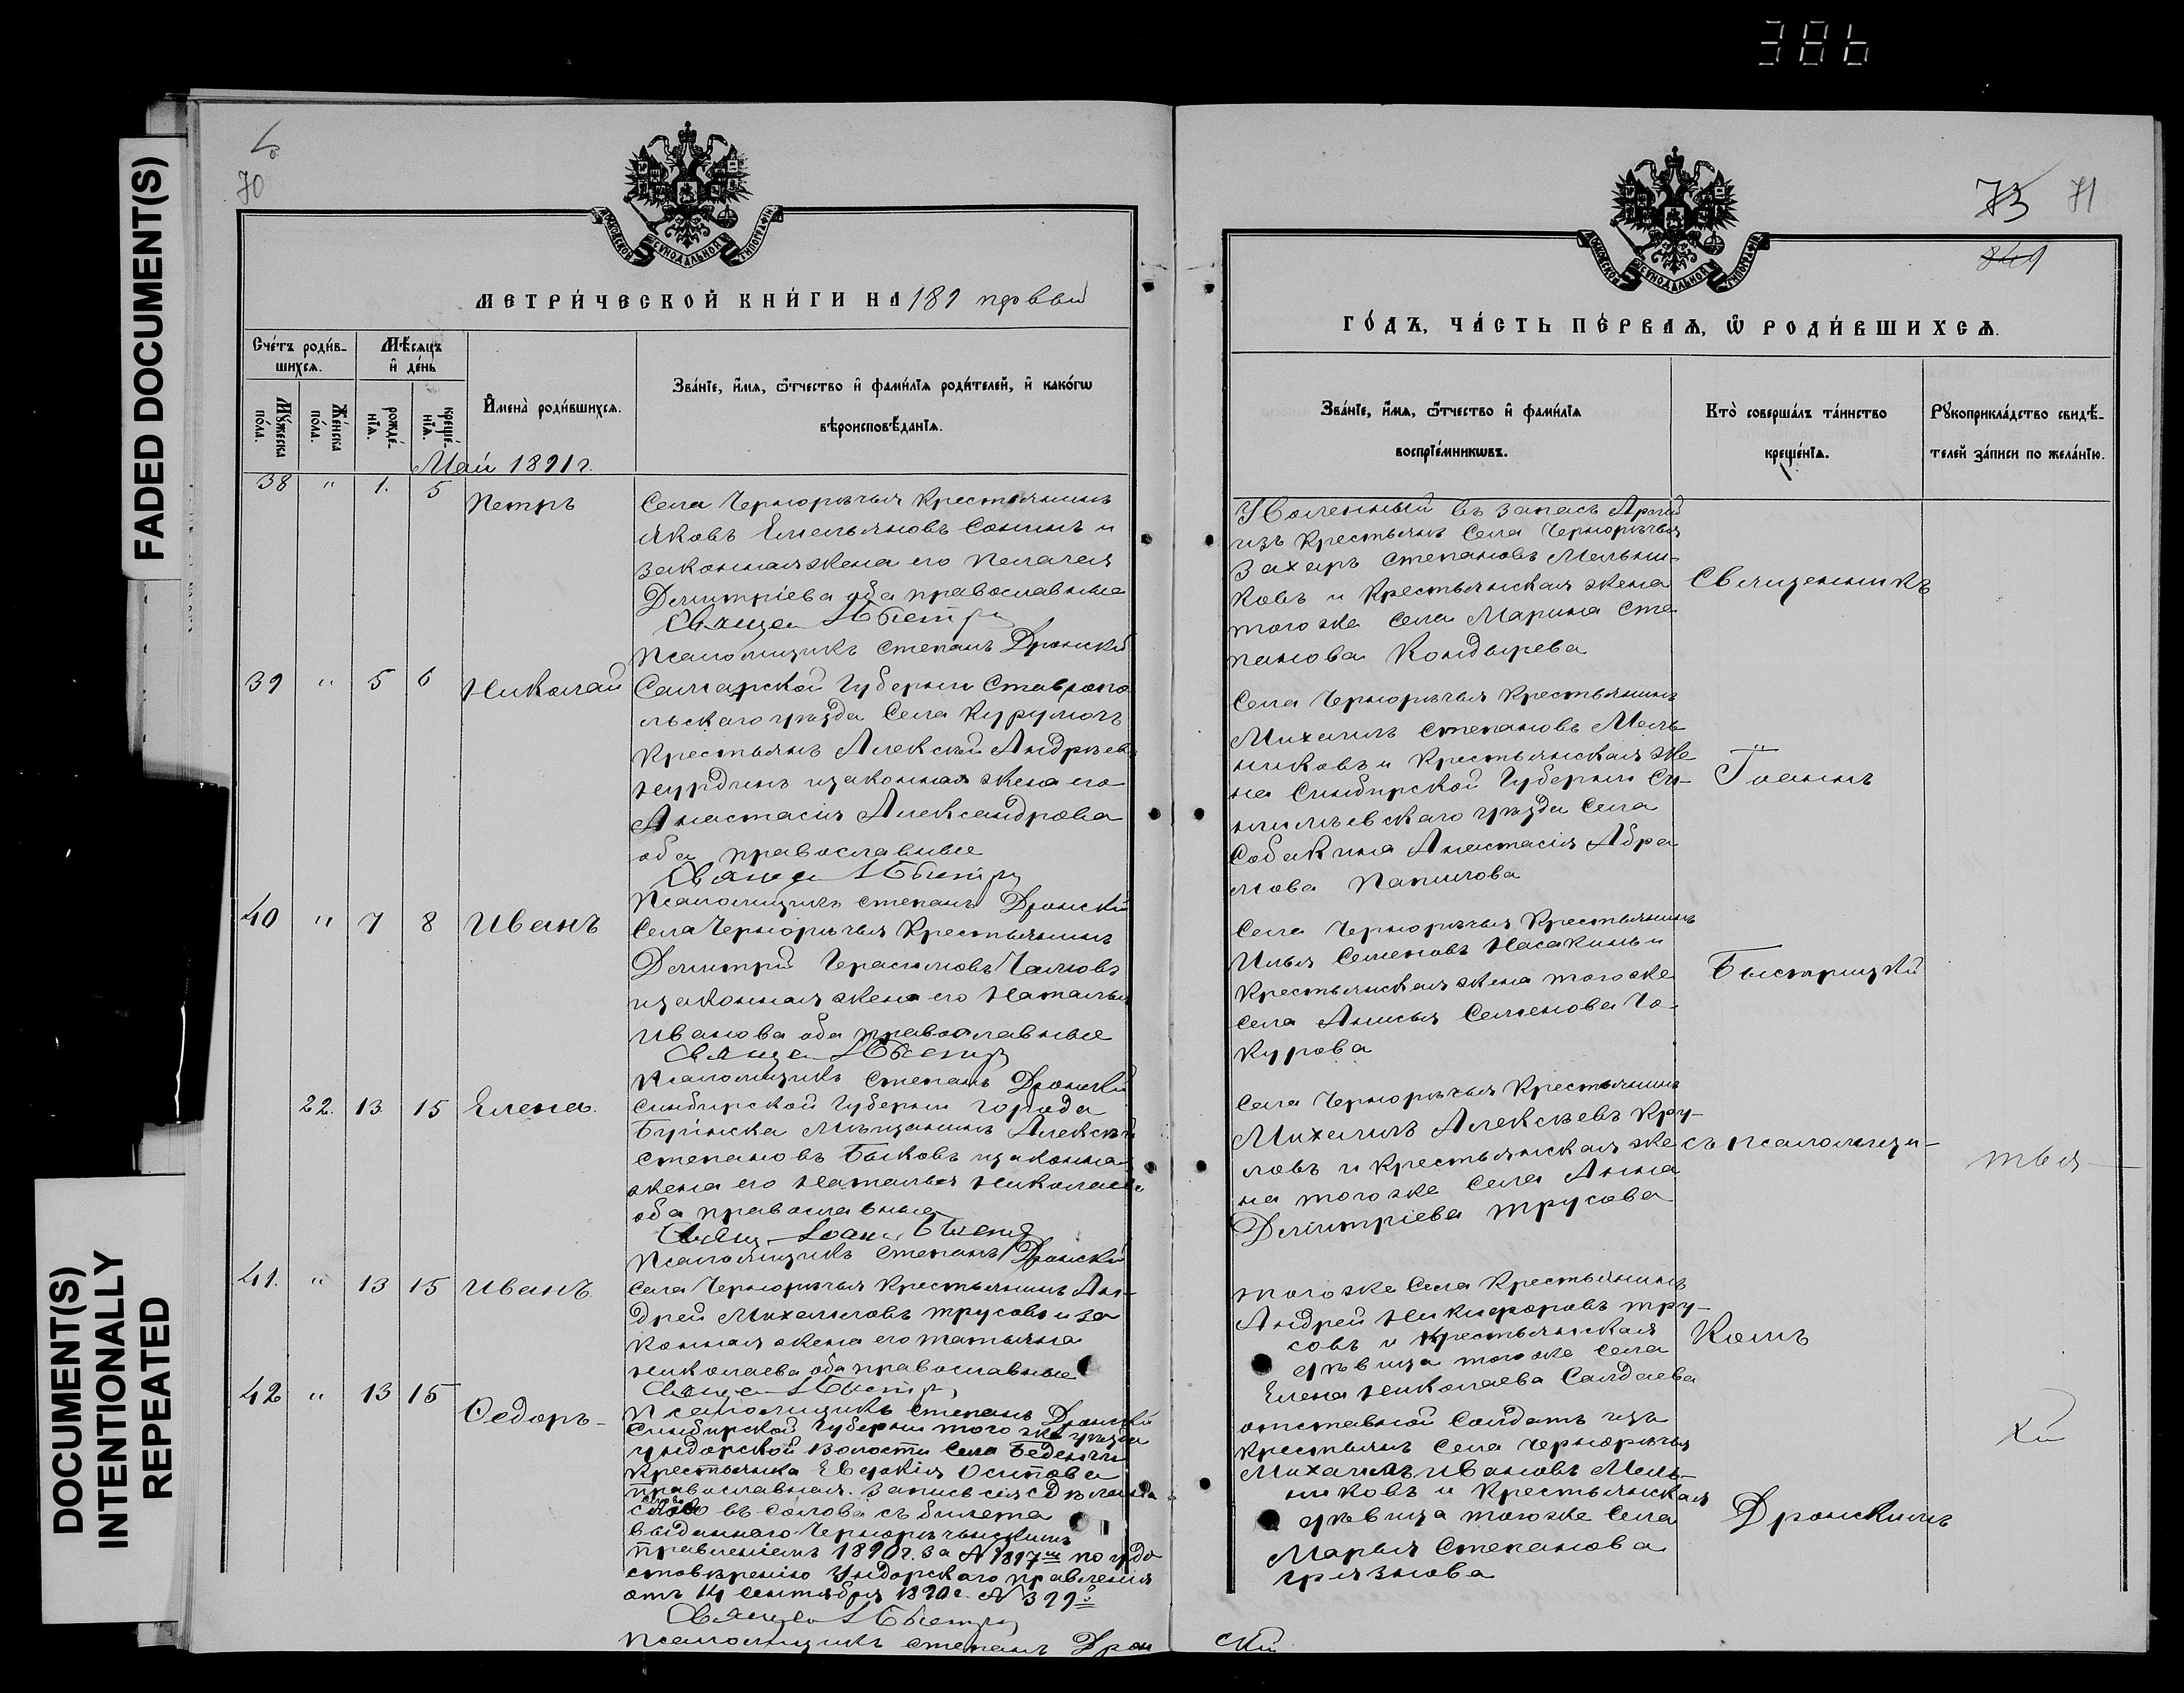 386
FADED DOCUMENT(S)
DOCUMENT(S)
INTENTIONALLY
REPEATED
70
МОСКОВСКОЙ СѴНОДАЛЬНОЙ ТИПОГРАФІИ
МЕТРИ́ЧЕСКОЙ КНИ́ГИ НА 1891 первый
Сче́тъ роди́в-
шихсѧ.
Мѣ́сѧцъ
и҆ де́нь
Мꙋ́жеска
по́ла.
Же́нска
по́ла.
рожде́-
нїѧ.
креще́-
нїѧ.
И҆мена̀ роди́вшихсѧ.
Зва́нїе, и҆́мѧ, ѻ҆́тчество и҆ фами́лїѧ роди́телей, и҆ како́гѡ
вѣроисповѣ́данїѧ.
Май 1891 г.
38 " 1. 5 Петръ
Села Чернорѣчья Крестьянинъ
Яковъ Емельяновъ Сонинъ и
законная жена его Пелагея
Димитріева оба православные
Священ І Быстри
Псаломщикъ Степанъ Дронскій
39 " 5 6 Николай
Самарской Губерніи Ставропо
льскаго уѣзда Села Курумочъ
Крестьянъ Алексѣй Андреевъ
Нурдинъ и законная жена его
Анастасія Александрова
оба православные
Священ І Быстри
Псаломщикъ Степанъ Дронскій
40 " 7 8 Иванъ
Села Чернорѣчья Крестьянинъ
Димитрій Герасимовъ Чамовъ
и законная жена его Наталья
Иванова оба православные
Священ І Быстр
Псаломщикъ Степанъ Дронскій
22. 13 15 Елена.
Симбирской Губерніи города
Буинска Мѣщанинъ Алексѣй
Степановъ Быковъ и законная
жена его Наталья Николаева
оба православные
Свящ Іоанн Быст
Псаломщикъ Степанъ Дронскій
41. " 13 15 Иванъ.
Села Чернорѣчья Крестьянинъ Ан-
дрей Михайловъ Трусовъ и за
конная жена его Татьяна
Николаева оба православные
Священ І Быстри
Псаломщикъ Степанъ Дронскій
42 " 13 15 Ѳедоръ-
Симбирской Губерніи того же уѣзда
Ундорской Волости Села Беденьги
Крестьянка Евдокія Осипова
православная. Запись сія сдѣлана
слово въ слово съ билета
выданнаго Чернорѣчинскимъ
Правленіемъ 1890 г. за № 1897мъ по удо
стовѣренію Ундорскаго правленія
отъ 14 Сентября 1890 г. № 399
Священ І Быстри
Псаломщикъ Степанъ Дрон
73 71
849
МОСКОВСКОЙ СѴНОДАЛЬНОЙ ТИПОГРАФІИ
ГО́ДЪ, ЧА́СТЬ ПЕ́РВАѦ, Ѡ҆ РОДИ́ВШИХСѦ.
Зва́нїе, и҆́мѧ, ѻ҆́тчество и҆ фами́лїѧ
воспрїе́мникѡвъ.
Кто̀ соверша́лъ та́инство
креще́нїѧ.
Рꙋкоприкла́дство свидѣ́-
телей за́писи по жела́нїю.
Уволенный въ запасъ Арміи
изъ Крестьянъ Села Чернорѣчья
Захаръ Степановъ Мельни-
ковъ и Крестьянская жена
того же Села Марина Сте
панова Кондырева
Священникъ
Села Чернорѣчья Крестьянинъ
Михаилъ Степановъ Мель
никовъ и Крестьянская же
на Симбирской Губерніи Си-
нгилѣевскаго уѣзда Села
Собакина Анастасія Абра
мова Папилова
Іоаннъ
Села Чернорѣчья Крестьянинъ
Илья Семеновъ Насакинъ и
Крестьянская жена того же
Села Анисья Семенова Чо-
курова
Быстрицкій
Села Чернорѣчья Крестьянинъ
Михаилъ Алексѣевъ Кру-
ловъ и Крестьянская же
на того же Села Анна
Димитріева Трусова
съ псаломщи-
тья
того же Села Крестьянинъ
Андрей Никифоровъ Тру-
совъ и Крестьянская
дѣвица того же Села
Елена Николаева Салдаева
Комъ
отставной Солдатъ изъ
Крестьянъ Села Чернорѣчья
Михаилъ Ивановъ Мель-
никовъ и Крестьянская
дѣвица того же Села
Марья Степанова
Грязнова
Дронскимъ
скій